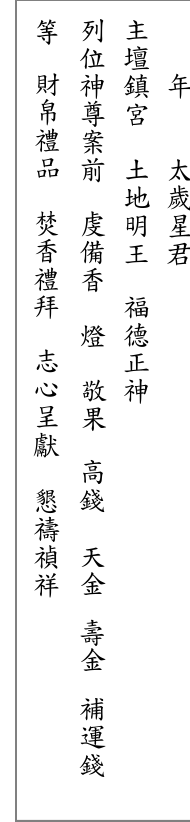 年　太歲星君
主壇鎮宮　土地明王　福德正神
列位神尊案前　虔備香　燈　敬果　高錢　天金　壽金　補運錢
等　財帛禮品　焚香禮拜　志心呈獻　懇禱禎祥